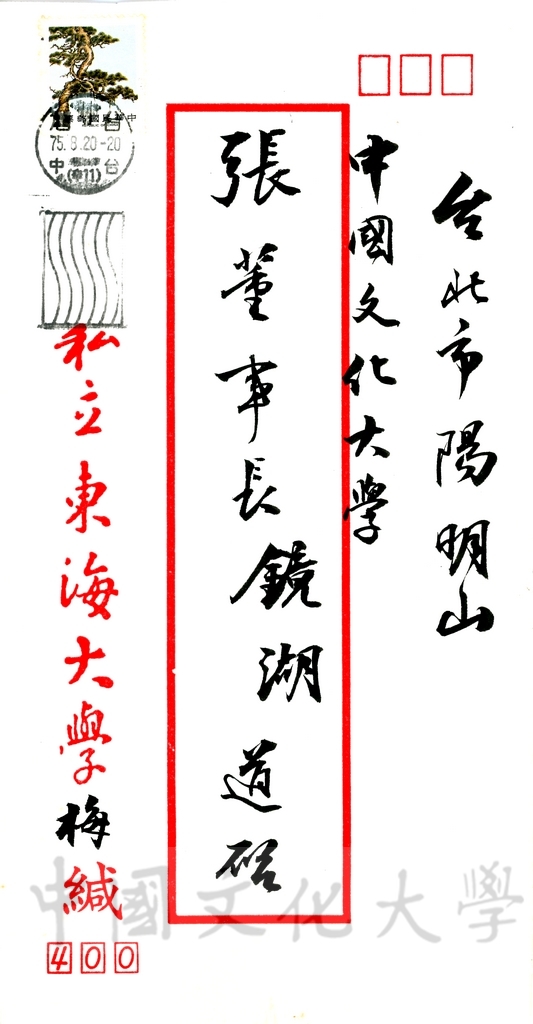 台北市陽明山
中國文化大學
張董事長鏡湖道啓
私立東海大學梅緘
400
75.8.20-20
中國文化大學